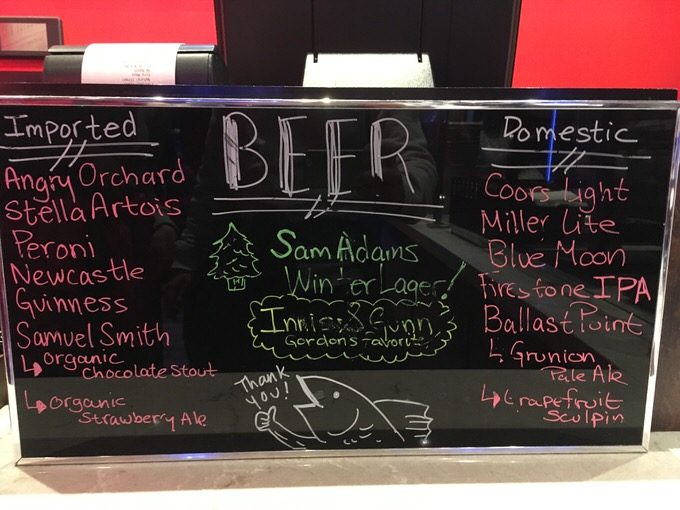 BEER
Imported
Angry Orchard
Stella Artois
Peroni
Newcastle
Guinness
Samuel Smith
↳ organic
chocolate stout
↳ organic
Strawberry Ale
Sam Adams
Winter Lager!
Innis & Gunn
Gordon's favorite
Thank
you!
Domestic
Coors Light
Miller Lite
Blue Moon
Firestone IPA
Ballast Point
↳ Grunion
Pale Ale
↳ Grapefruit
Sculpin